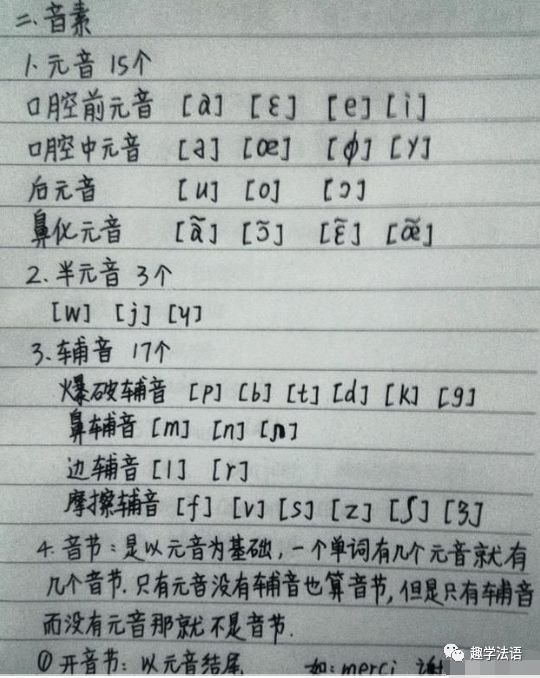 二、音素
1. 元音 15个
口腔前元音 [a] [ɛ] [e] [i]
口腔中元音 [ə] [œ] [ϕ] [y]
后元音 [u] [o] [ɔ]
鼻化元音 [ã] [ɔ̃] [ɛ̃] [œ̃]
2. 半元音 3个
[w] [j] [ɥ]
3. 辅音 17个
爆破辅音 [p] [b] [t] [d] [k] [g]
鼻辅音 [m] [n] [ɲ]
边辅音 [l] [r]
摩擦辅音 [f] [v] [s] [z] [ʃ] [ʒ]
4. 音节：是以元音为基础，一个单词有几个元音就有
几个音节. 只有元音没有辅音也算音节, 但是只有辅音
而没有元音那就不是音节.
① 开音节：以元音结尾 如: merci 谢
趣学法语